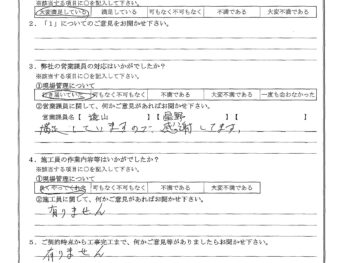 ※該当する項目に○を記入して下さい。
大変満足している 満足している 可もなく不可もなく 不満である 大変不満である
2．「1」についてのご意見をお聞かせ下さい。
3．弊社の営業課員の対応はいかがでしたか？
※該当する項目に○を記入して下さい。
①現場管理について
行き届いていた 可もなく不可もなく 不満である 大変不満である 一度も会わなかった
②営業課員に関して、何かご意見があればお聞かせ下さい。
営業課員名【 遠山 】【 星野 】【 】
満足していますので、感謝してます。
4．施工員の作業内容等はいかがでしたか？
※該当する項目に○を記入して下さい。
①現場管理について
良くやってくれた 可もなく不可もなく 不満である 大変不満である
②施工員に関して、何かご意見があればお聞かせ下さい。
有りません
5．ご契約時点から工事完工まで、何かご意見等がありましたらお聞かせ下さい。
有りません